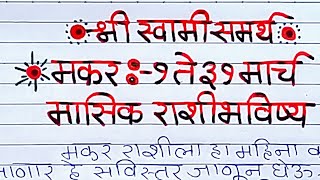 श्री स्वामी समर्थ
मकर :- १ ते ३१ मार्च
मासिक राशीभविष्य
मकर राशीला हा महिना क
जाणार हे सविस्तर जाणून घेऊ.